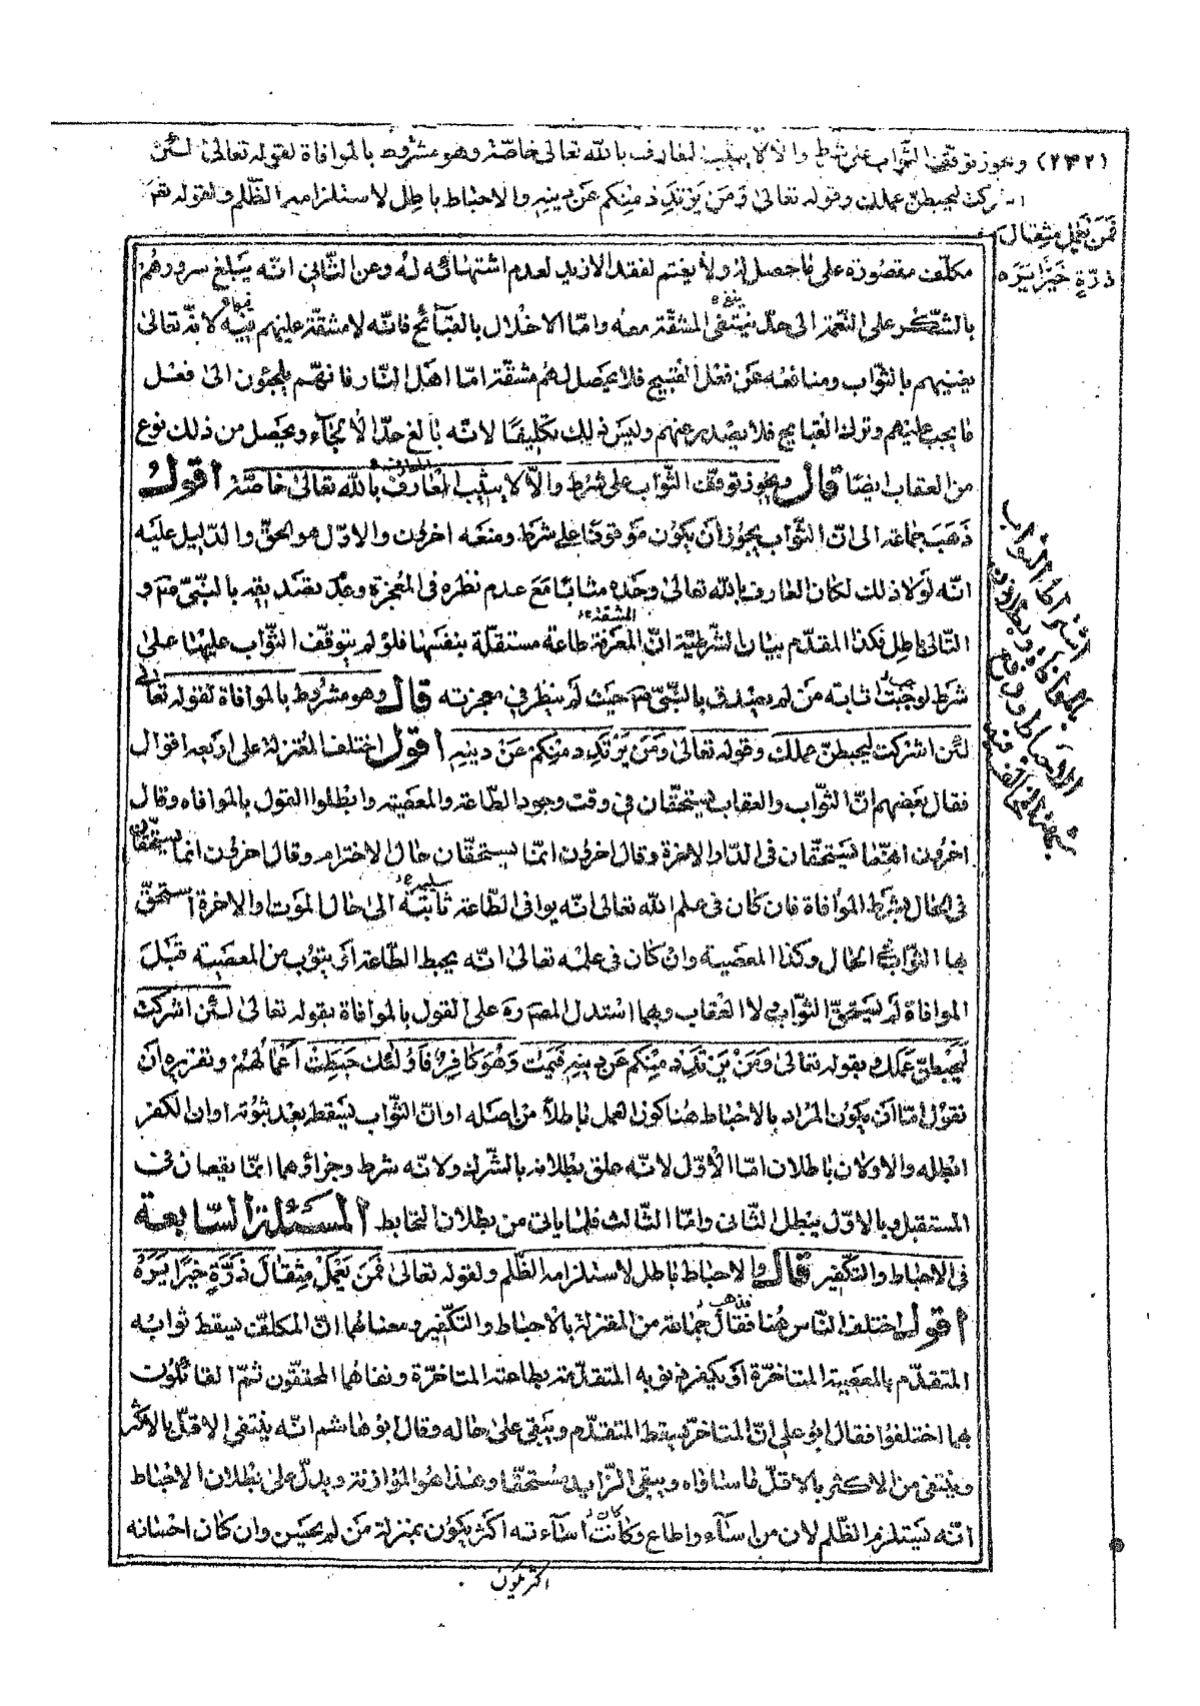 (٢٣٢) ويجوز توقف الثواب على شرط والا لاثيب العارف بالله تعالى خاصة وهو مشروط بالموافاة لقوله تعالى لئن
اشركت ليحبطن عملك وقوله تعالى ومن يرتدد منكم عن دينه والاحباط باطل لاستلزامه الظلم ولقوله تعم
فمن يعمل مثقال
ذرة خيرا يره
مكلف مقصورة على ما حصل له ولا يغتم لفقد الازيد لعدم اشتهائه له وعن الثاني انه يبلغ سرورهم
بالشكر على النعم الى حد ينتفي المشقة معه واما الاخلال بالقبائح فانه لا مشقة عليهم فيه لانه تعالى
يغنيهم بالثواب ومنافعه عن فعل القبيح فلا يحصل لهم مشقة اما اهل النار فانهم يلجئون الى فعل
ما يجب عليهم وترك القبايح فلا يصدر عنهم وليس ذلك تكليفا لانه بالغ حد الالجاء ويحصل من ذلك نوع
من العقاب ايضا قال ويجوز توقف الثواب على شرط والا لاثيب العارف بالله تعالى خاصة اقول
ذهب جماعة الى ان الثواب يجوز أن يكون موقوفا على شرط ومنعه اخرون والاول هو الحق والدليل عليه
انه لولا ذلك لكان العارف بالله تعالى وحده مثابا مع عدم نظره في المعجزة وعدم تصديقه بالنبي صم و
التالي باطل فكذا المقدم بيان الشرطية ان المعرفة طاعة مستقلة بنفسها فلو لم يتوقف الثواب عليها على
شرط لوجبت اثابة من لم يصدق بالنبي صم حيث لم ينظر في معجزته قال وهو مشروط بالموافاة لقوله تعالى
لئن اشركت ليحبطن عملك وقوله تعالى ومن يرتدد منكم عن دينه اقول اختلف المعتزلة على اربعة اقوال
فقال بعضهم ان الثواب والعقاب يستحقان في وقت وجود الطاعة والمعصية وابطلوا القول بالموافاه وقال
اخرون انهما يستحقان في الدار الاخرة وقال اخرون انما يستحقان حال الاخترام وقال اخرون انما يستحقان
في الحال بشرط الموافاة فان كان في علم الله تعالى انه يوافي الطاعة ثابتة الى حال الموت او الاخرة استحق
بها الثواب في الحال وكذا المعصية وان كان في علمه تعالى انه يحبط الطاعة او يتوب من المعصية قبل
الموافاة لم يستحق الثواب ولا العقاب وبهما استدل المصره على القول بالموافاة بقوله تعالى لئن اشركت
ليحبطن عملك بقوله تعالى ومن يرتدد منكم عن دينه فيمت وهو كافر فاولئك حبطت اعمالهم وتقريره ان
نقول اما أن يكون المراد بالاحباط هنا كون العمل باطلا من اصله او ان الثواب يسقط بعد ثبوته او ان الكفر
ابطله والاولان باطلان اما الأول لانه علق بطلانه بالشرك ولانه شرط وجزاؤهما انما يقعان في
المستقبل وبالاول يبطل الثاني واما الثالث فلما ياتي من بطلان التحابط المسئلة السابعة
في الاحباط والتكفير قال والاحباط باطل لاستلزامه الظلم ولقوله تعالى فمن يعمل مثقال ذرة خيرا يره
اقول اختلف الناس هنا فقال جماعة من المعتزلة بالاحباط والتكفير ومعناهما ان المكلف يسقط ثوابه
المتقدم بالمعصية المتاخرة أو يكفر ذنوبه المتقدمة بطاعته المتاخرة ونفاهما المحققون ثم القائلون
بهما اختلفوا فقال ابو علي ان المتاخر يسقط المتقدم ويبقى على حاله وقال بوهاشم انه ينتفي الاقل بالاكثر
وينتفي من الاكثر بالاقل ماساواه ويبقى الزايد مستحقا وهذا هو الموازنة ويدل على بطلان الاحباط
انه يستلزم الظلم لان من اسآء واطاع وكانت اساءته اكثر يكون بمنزلة من لم يحسن وان كان احسانه
اكثر يكون
اشتراط الثواب
بالموافاة وبطلان
الاحباط